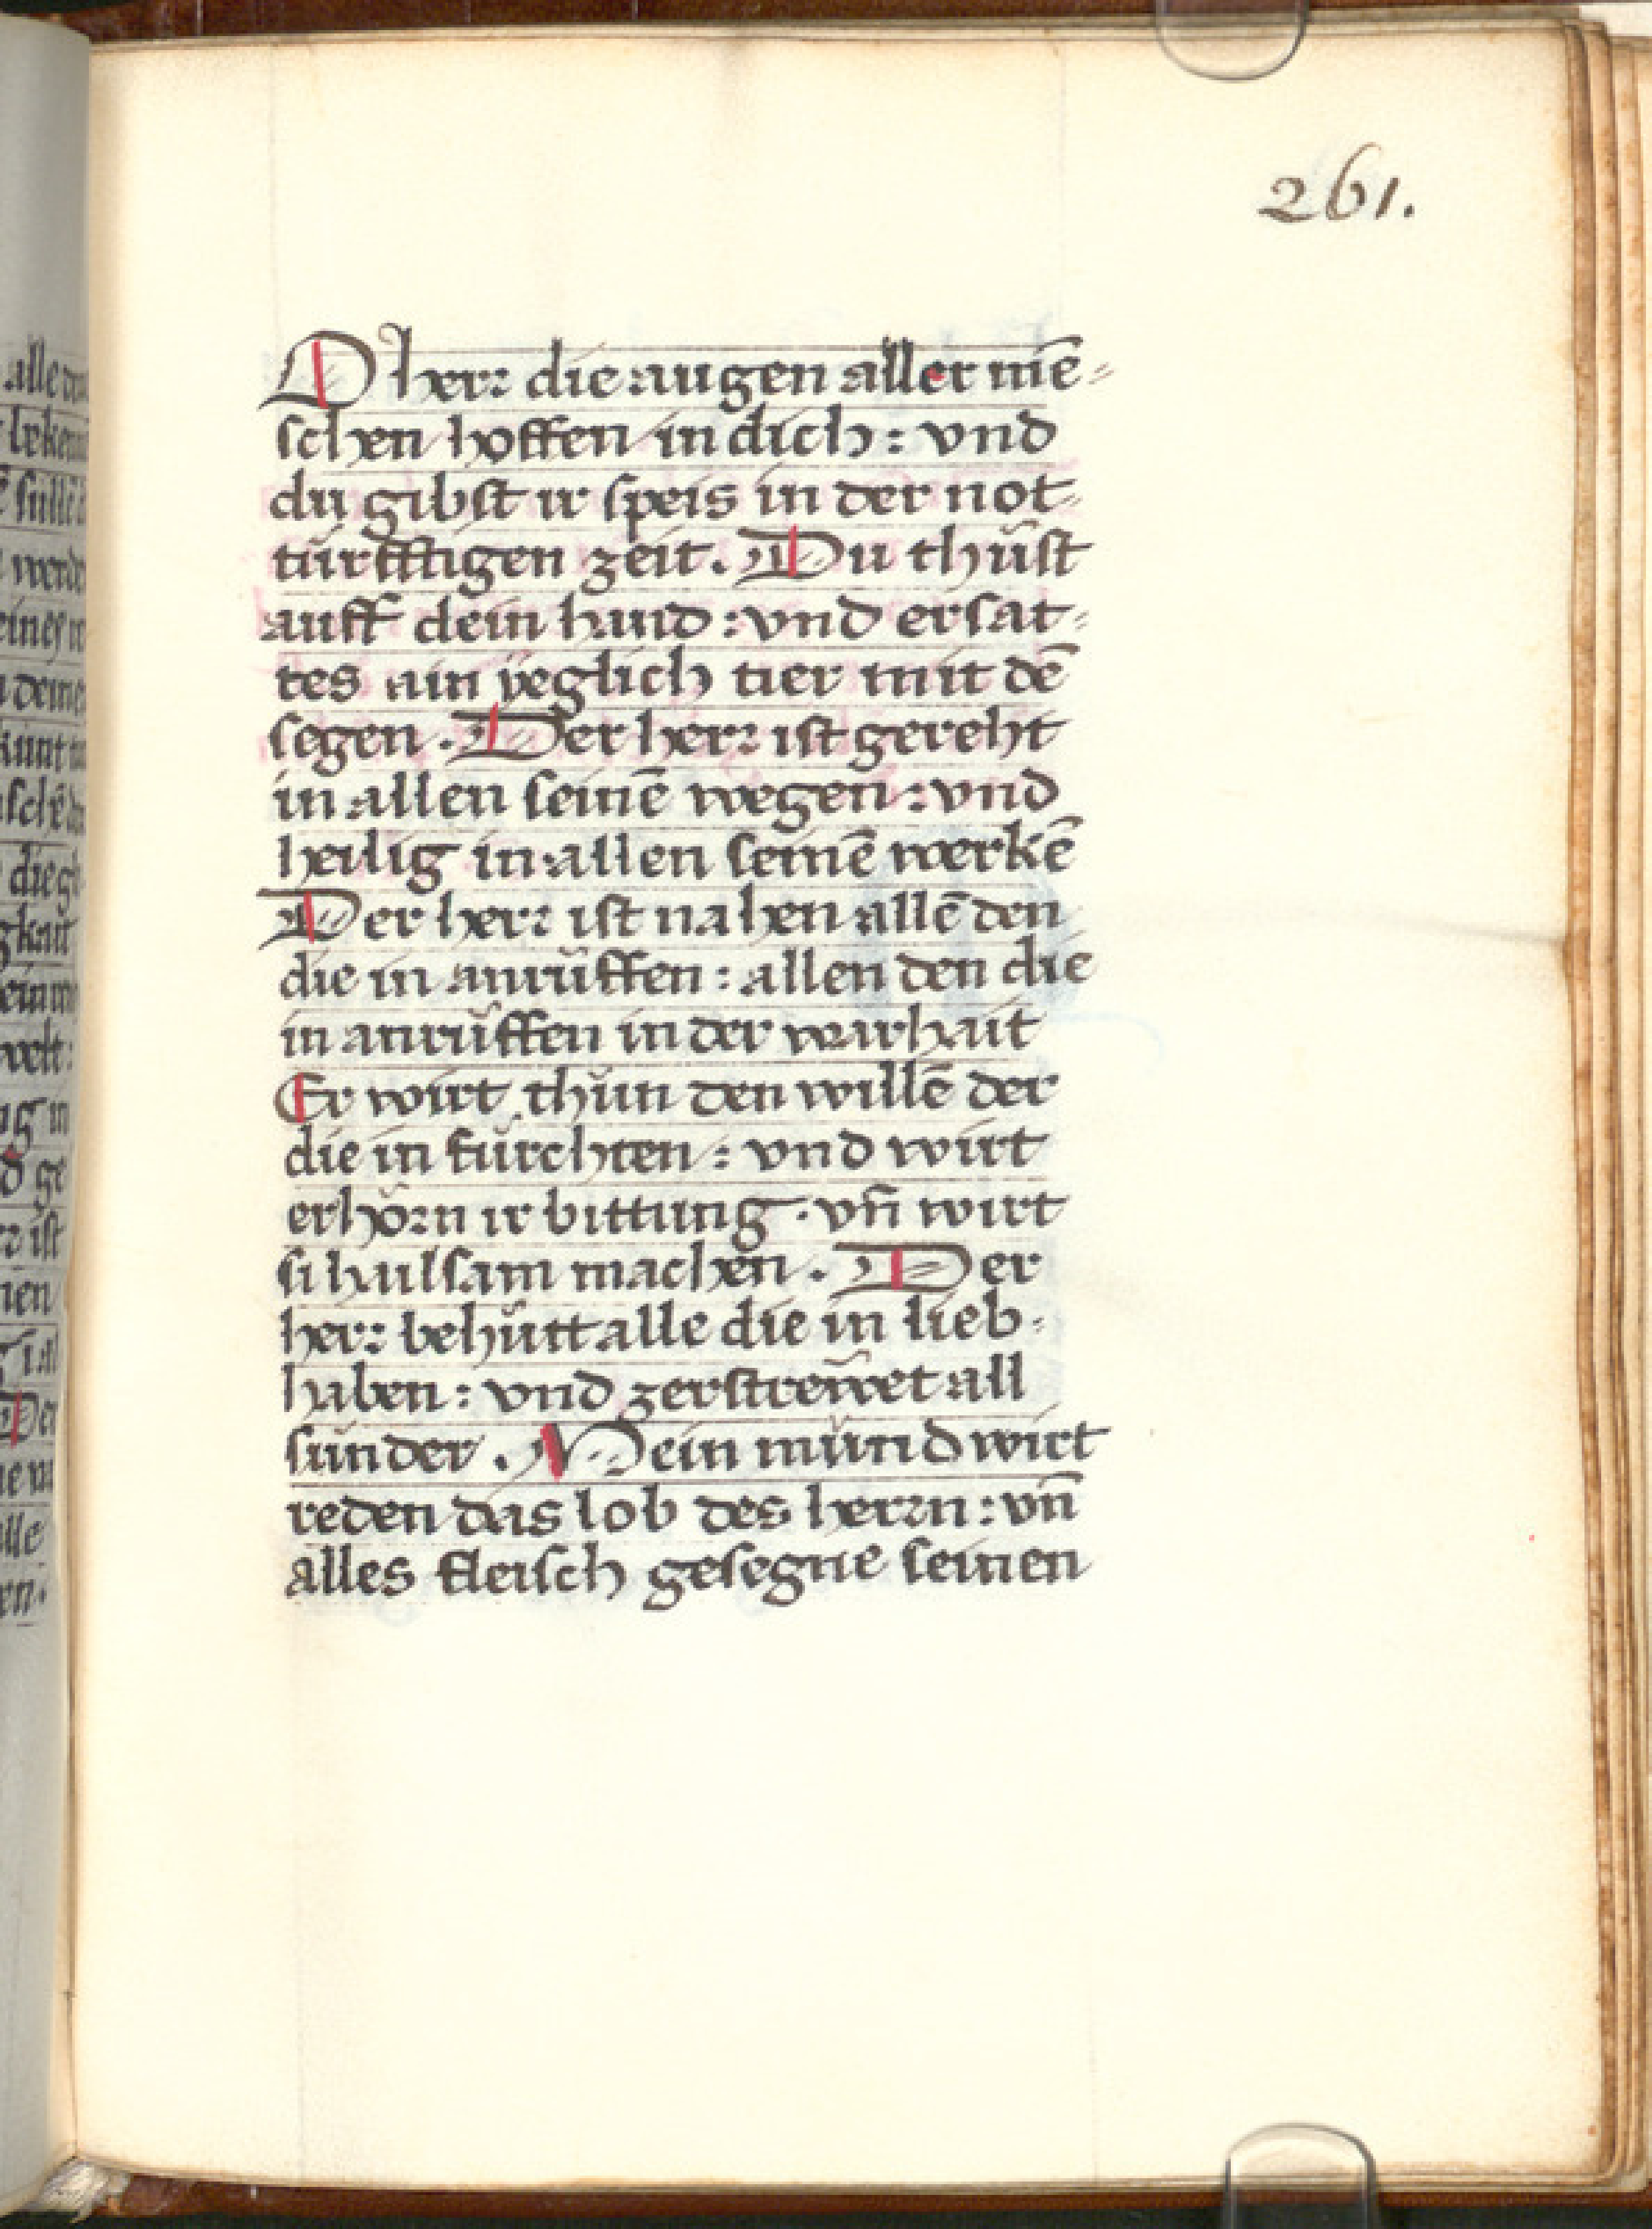 261.
O herr die augen aller mē-
schen hoffen in dich : vnd
du gibst ir speis in der not-
türfftigen zeit . Du thůst
auff dein hand : vnd ersat-
tes ain ÿeglich tier mit dē
segen . Der herr ist gereht
in allen seinē wegen : vnd
heilig in allen seinē werkē
Der herr ist nahen allē den
die in anrůffen : allen den die
in anrůffen in der warhait
Er wirt thůn den willē der
die in fürchten : vnd wirt
erhörn ir bittung . vn̄ wirt
si hailsam machen . Der
herr behütt alle die in lieb-
haben : vnd zerstreẅet all
sünder . Mein mŭnd wirt
reden das lob des herrn : vn̄
alles fleisch gesegne seinen